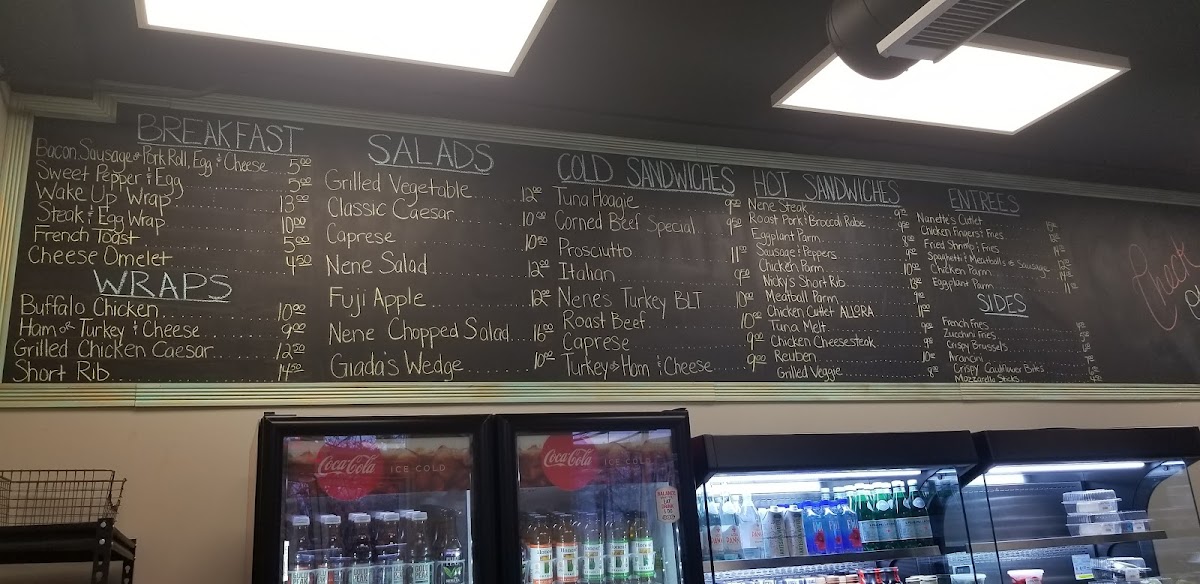 BREAKFAST
Bacon, Sausage or Pork Roll, Egg & Cheese 5.00
Sweet Pepper & Egg 5.00
Wake Up Wrap 13.00
Steak & Egg Wrap 10.00
French Toast 5.00
Cheese Omelet 4.50
WRAPS
Buffalo Chicken 10.00
Ham or Turkey & Cheese 9.00
Grilled Chicken Caesar 12.50
Short Rib 14.50
SALADS
Grilled Vegetable 12.00
Classic Caesar 10.00
Caprese 10.50
Nene Salad 12.00
Fuji Apple 12.00
Nene Chopped Salad 16.00
Giada's Wedge 10.00
COLD SANDWICHES
Tuna Hoagie
Corned Beef Special 9.50
Prosciutto
Italian 9.50
Nenes Turkey BLT 10.00
Roast Beef 10.00
Caprese 9.00
Turkey or Ham & Cheese 9.00
HOT SANDWICHES
Nene Steak
Roast Pork & Broccoli Rabe
Eggplant Parm
Sausage & Peppers
Chicken Parm
Nicky's Short Rib
Meatball Parm
Chicken Cutlet ALLORA
Tuna Melt
Chicken Cheesesteak
Reuben
Grilled Veggie
ENTREES
Nanette's Cutlet
Chicken Fingers & Fries
Fried Shrimp & Fries
Spaghetti & Meatballs or Sausage
Chicken Parm
Eggplant Parm
SIDES
French Fries
Zucchini Fries
Crispy Brussels
Arancini
Crispy Cauliflower Bites
Mozzarella Sticks
Check
Coca-Cola ICE COLD
Coca-Cola ICE COLD